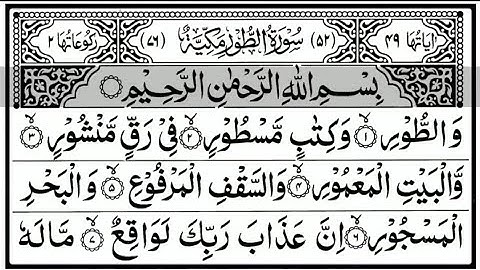 اٰیَاتُهَا ۴۹ (۵۲) سُوْرَةُ الطُّوْرِ مَكِّيَّةٌ (۷۶) رُكُوْعَاتُهَا ۲
بِسْمِ اللّٰهِ الرَّحْمٰنِ الرَّحِيْمِ
وَالطُّوْرِ ۙ‏﴿۱﴾ وَكِتٰبٍ مَّسْطُوْرٍ ۙ‏﴿۲﴾ فِیْ رَقٍّ مَّنْشُوْرٍ ۙ‏﴿۳﴾
وَّالْبَيْتِ الْمَعْمُوْرِ ۙ‏﴿۴﴾ وَالسَّقْفِ الْمَرْفُوْعِ ۙ‏﴿۵﴾ وَالْبَحْرِ
الْمَسْجُوْرِ ۙ‏﴿۶﴾ اِنَّ عَذَابَ رَبِّكَ لَوَاقِعٌ ۙ‏﴿۷﴾ مَّا لَهٗ